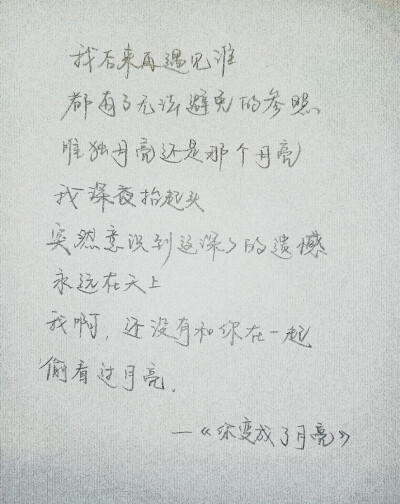 我后来再遇见谁
都有了无法避免的参照、
唯独月亮还是那个月亮
我深夜抬起头
突然意识到这深深的遗憾
永远在天上
我啊，还没有和你在一起
偷看过月亮.
—《你变成了月亮》